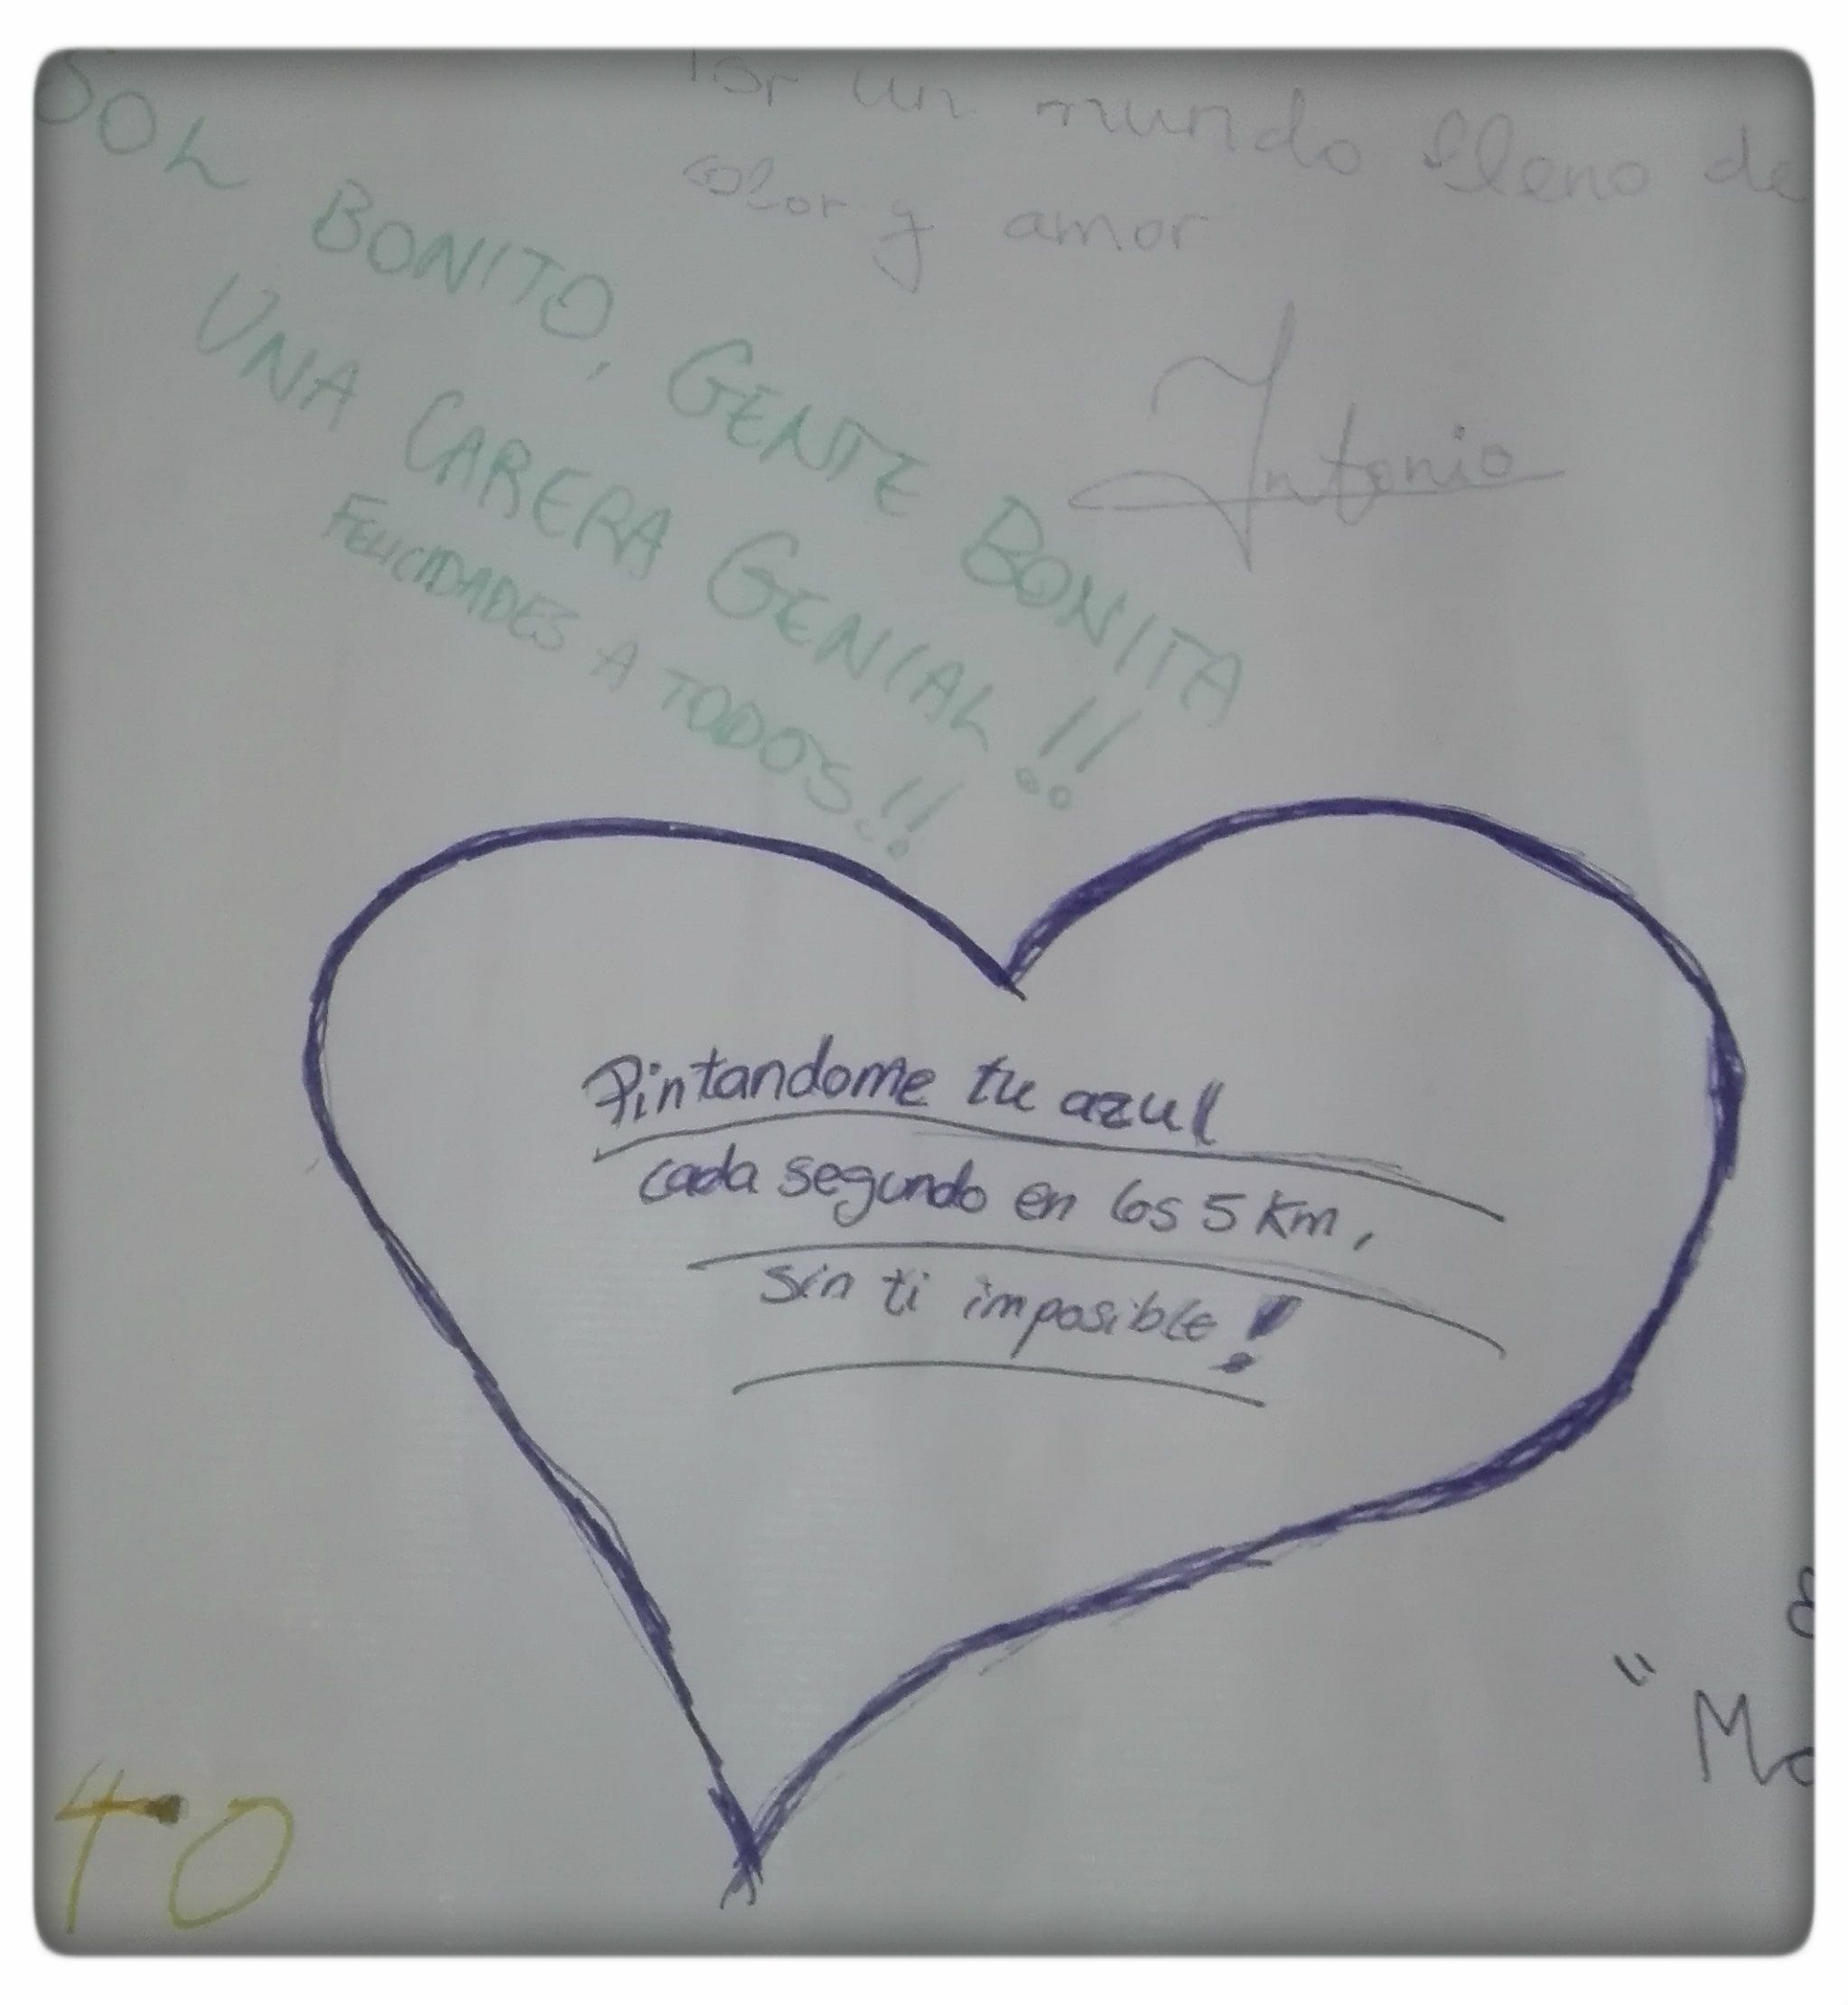 Por un mundo lleno de
color y amor
Antonio
SOL BONITO, GENTE BONITA
UNA CARERA GENIAL!!
FELICIDADES A TODOS!!
Pintandome tu azul
cada segundo en los 5 Km,
sin ti imposible!
"Mo